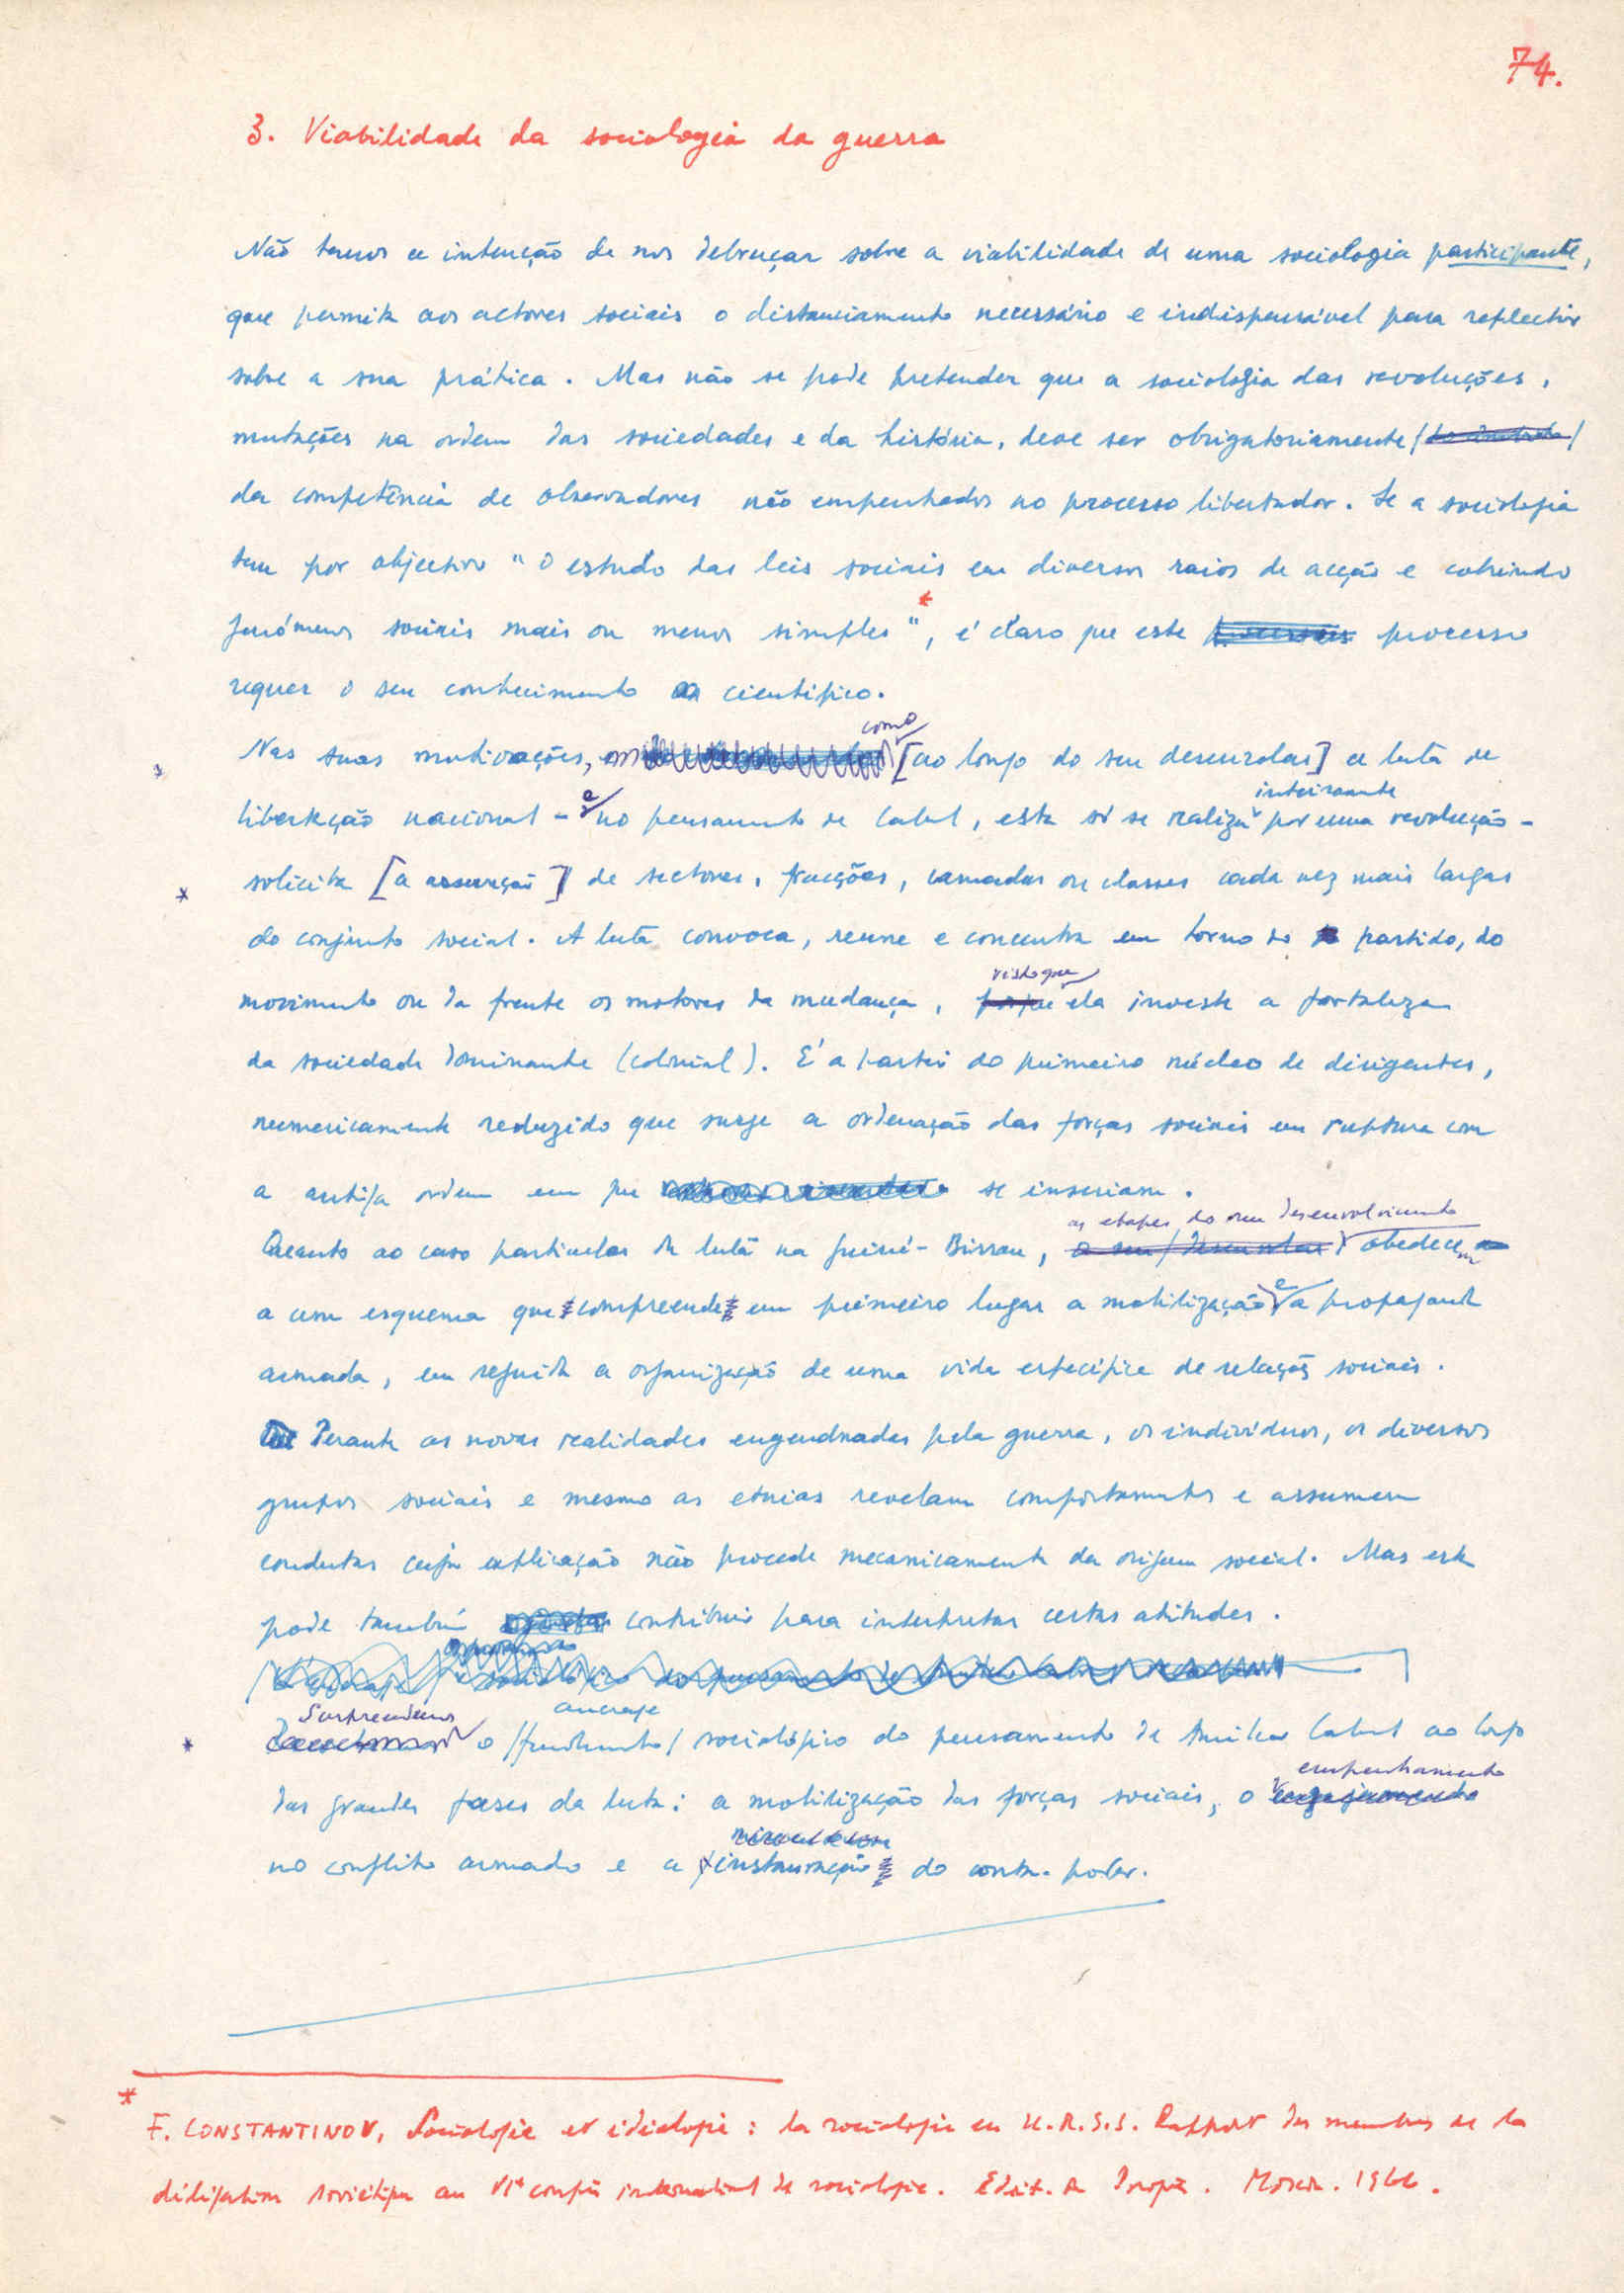 74.
3. Viabilidade da sociologia da guerra
Não temos a intenção de nos debruçar sobre a viabilidade de uma sociologia participante,
que permita aos actores sociais o distanciamento necessário e indispensável para reflectir
sobre a sua prática. Mas não se pode pretender que a sociologia das revoluções,
mutações na ordem das sociedades e da história, deve ser obrigatoriamente
da competência de observadores não empenhados no processo libertador. Se a sociologia
tem por objectivo "o estudo das leis sociais em diversos raios de acção e cobrindo
fenómenos sociais mais ou menos simples"*, é claro que este processo
requer o seu conhecimento científico.
como
* Nas suas motivações, [ao longo do seu desenrolar] a luta de
inteiramente
libertação nacional - e no pensamento de Cabral, esta só se realiza por uma revolução -
* solicita [a assunção] de sectores, fracções, camadas ou classes cada vez mais largas
do conjunto social. A luta convoca, reune e concentra em torno do partido, do
visto que
movimento ou da frente os motores da mudança, porque ela investe a fortaleza
da sociedade dominante (colonial). É a partir do primeiro núcleo de dirigentes,
numericamente reduzido que surge a ordenação das forças sociais em ruptura com
a antiga ordem em que se inseriam.
as etapas do seu desenvolvimento
Quanto ao caso particular da luta na Guiné-Bissau, o seu / desenrolar / obedecem
a um esquema que compreende em primeiro lugar a mobilização e a propaganda
armada, em seguida a organização de uma vida específica de relações sociais.
Perante as novas realidades engendradas pela guerra, os indivíduos, os diversos
grupos sociais e mesmo as etnias revelam comportamentos e assumem
condutas cuja explicação não procede mecanicamente da origem social. Mas esta
pode também contribuir para interpretar certas atitudes.
Surpreendemos
ancrage
* o /fundamento/ sociológico do pensamento de Amilcar Cabral ao longo
empenhamento
das grandes fases da luta: a mobilização das forças sociais, o engajamento
no conflito armado e a instauração do contra-poder.
* F. CONSTANTINOV, Sociologie et idéologie : la sociologie en U.R.S.S. Rapport des membres de la
délégation soviétique au VIe congrès international de sociologie. Edit. du Progrès. Moscou. 1966.